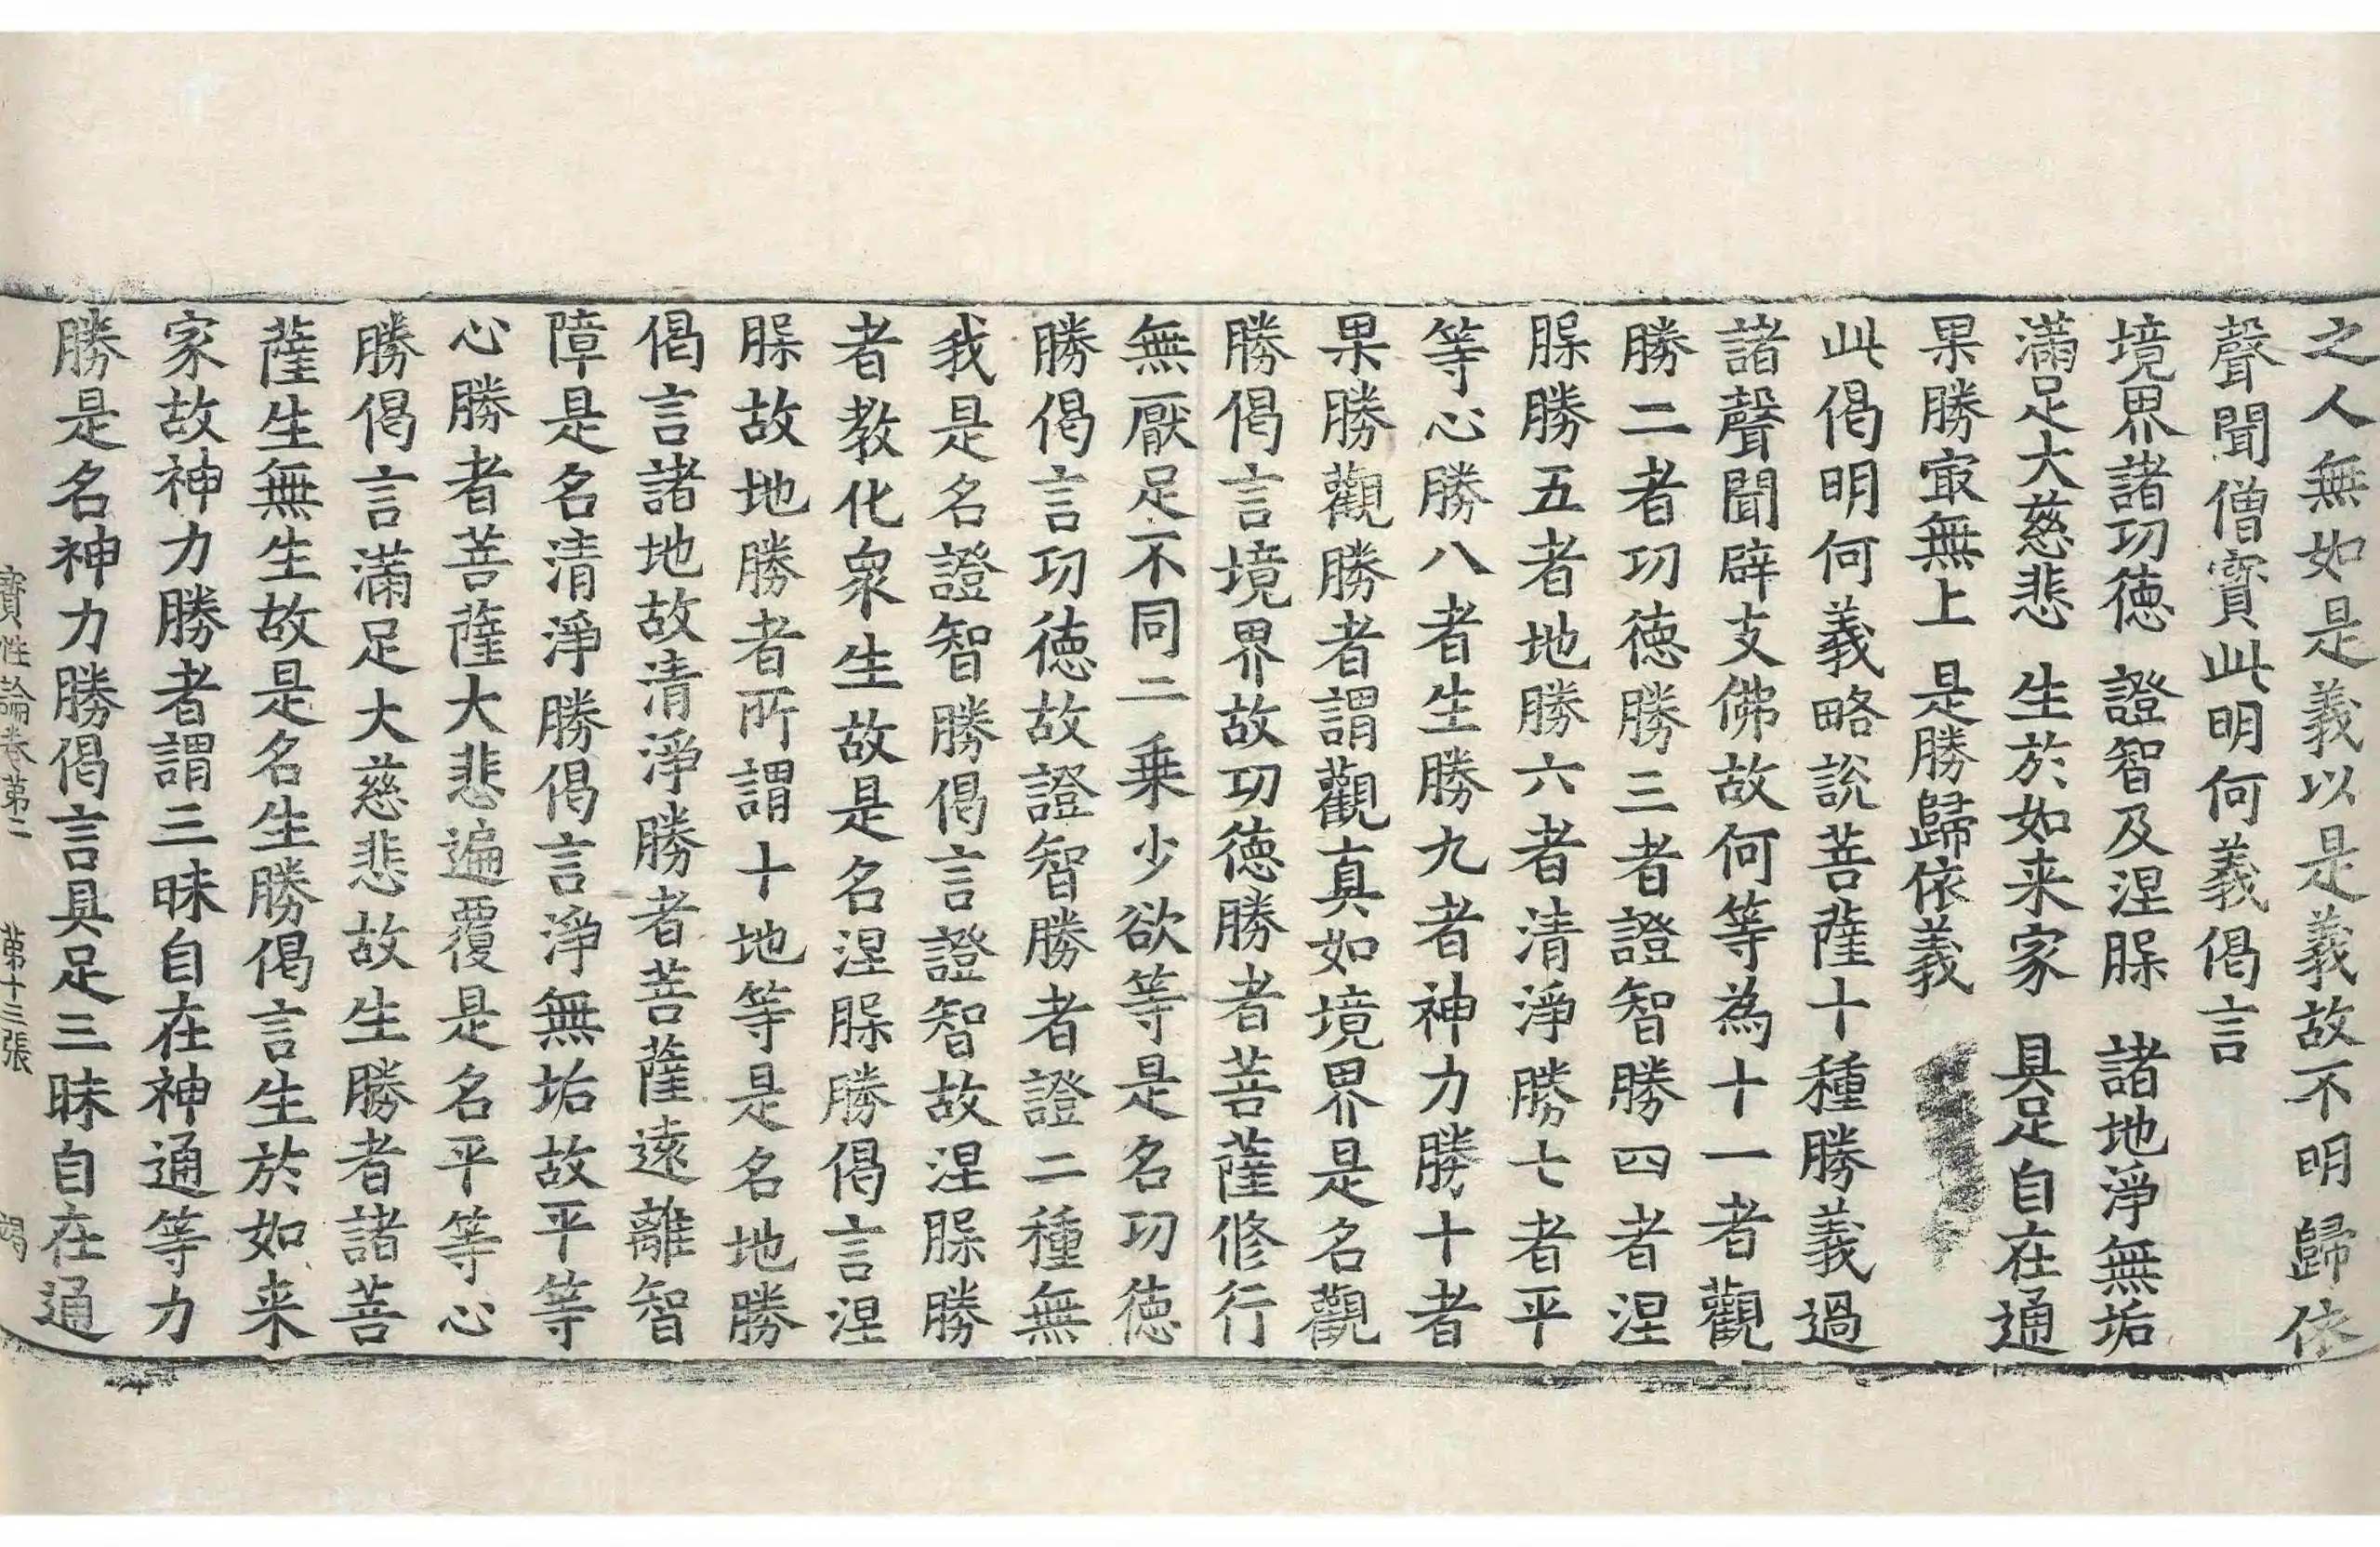 之人無如是義以是義故不明歸依
聲聞僧寳此明何義偈言
境界諸功徳 證智及涅脲 諸地淨無垢
滿足大慈悲 生於如来家 具足自在通
果勝㝡無上 是勝歸依義
此偈明何義略說菩薩十種勝義過
諸聲聞辟支佛故何等為十一者觀
勝二者功徳勝三者證智勝四者涅
脲勝五者地勝六者清淨勝七者平
等心勝八者生勝九者神力勝十者
果勝觀勝者謂觀真如境界是名觀
勝偈言境界故功徳勝者菩薩修行
無厭足不同二乗少欲等是名功徳
勝偈言功徳故證智勝者證二種無
我是名證智勝偈言證智故涅脲勝
者教化衆生故是名涅脲勝偈言涅
脲故地勝者所謂十地等是名地勝
偈言諸地故清淨勝者菩薩遠離智
障是名清淨勝偈言淨無垢故平等
心勝者菩薩大悲遍覆是名平等心
勝偈言滿足大慈悲故生勝者諸菩
薩生無生故是名生勝偈言生於如来
家故神力勝者謂三昧自在神通等力
勝是名神力勝偈言具足三昧自在通
寳性論卷第二 第十三張